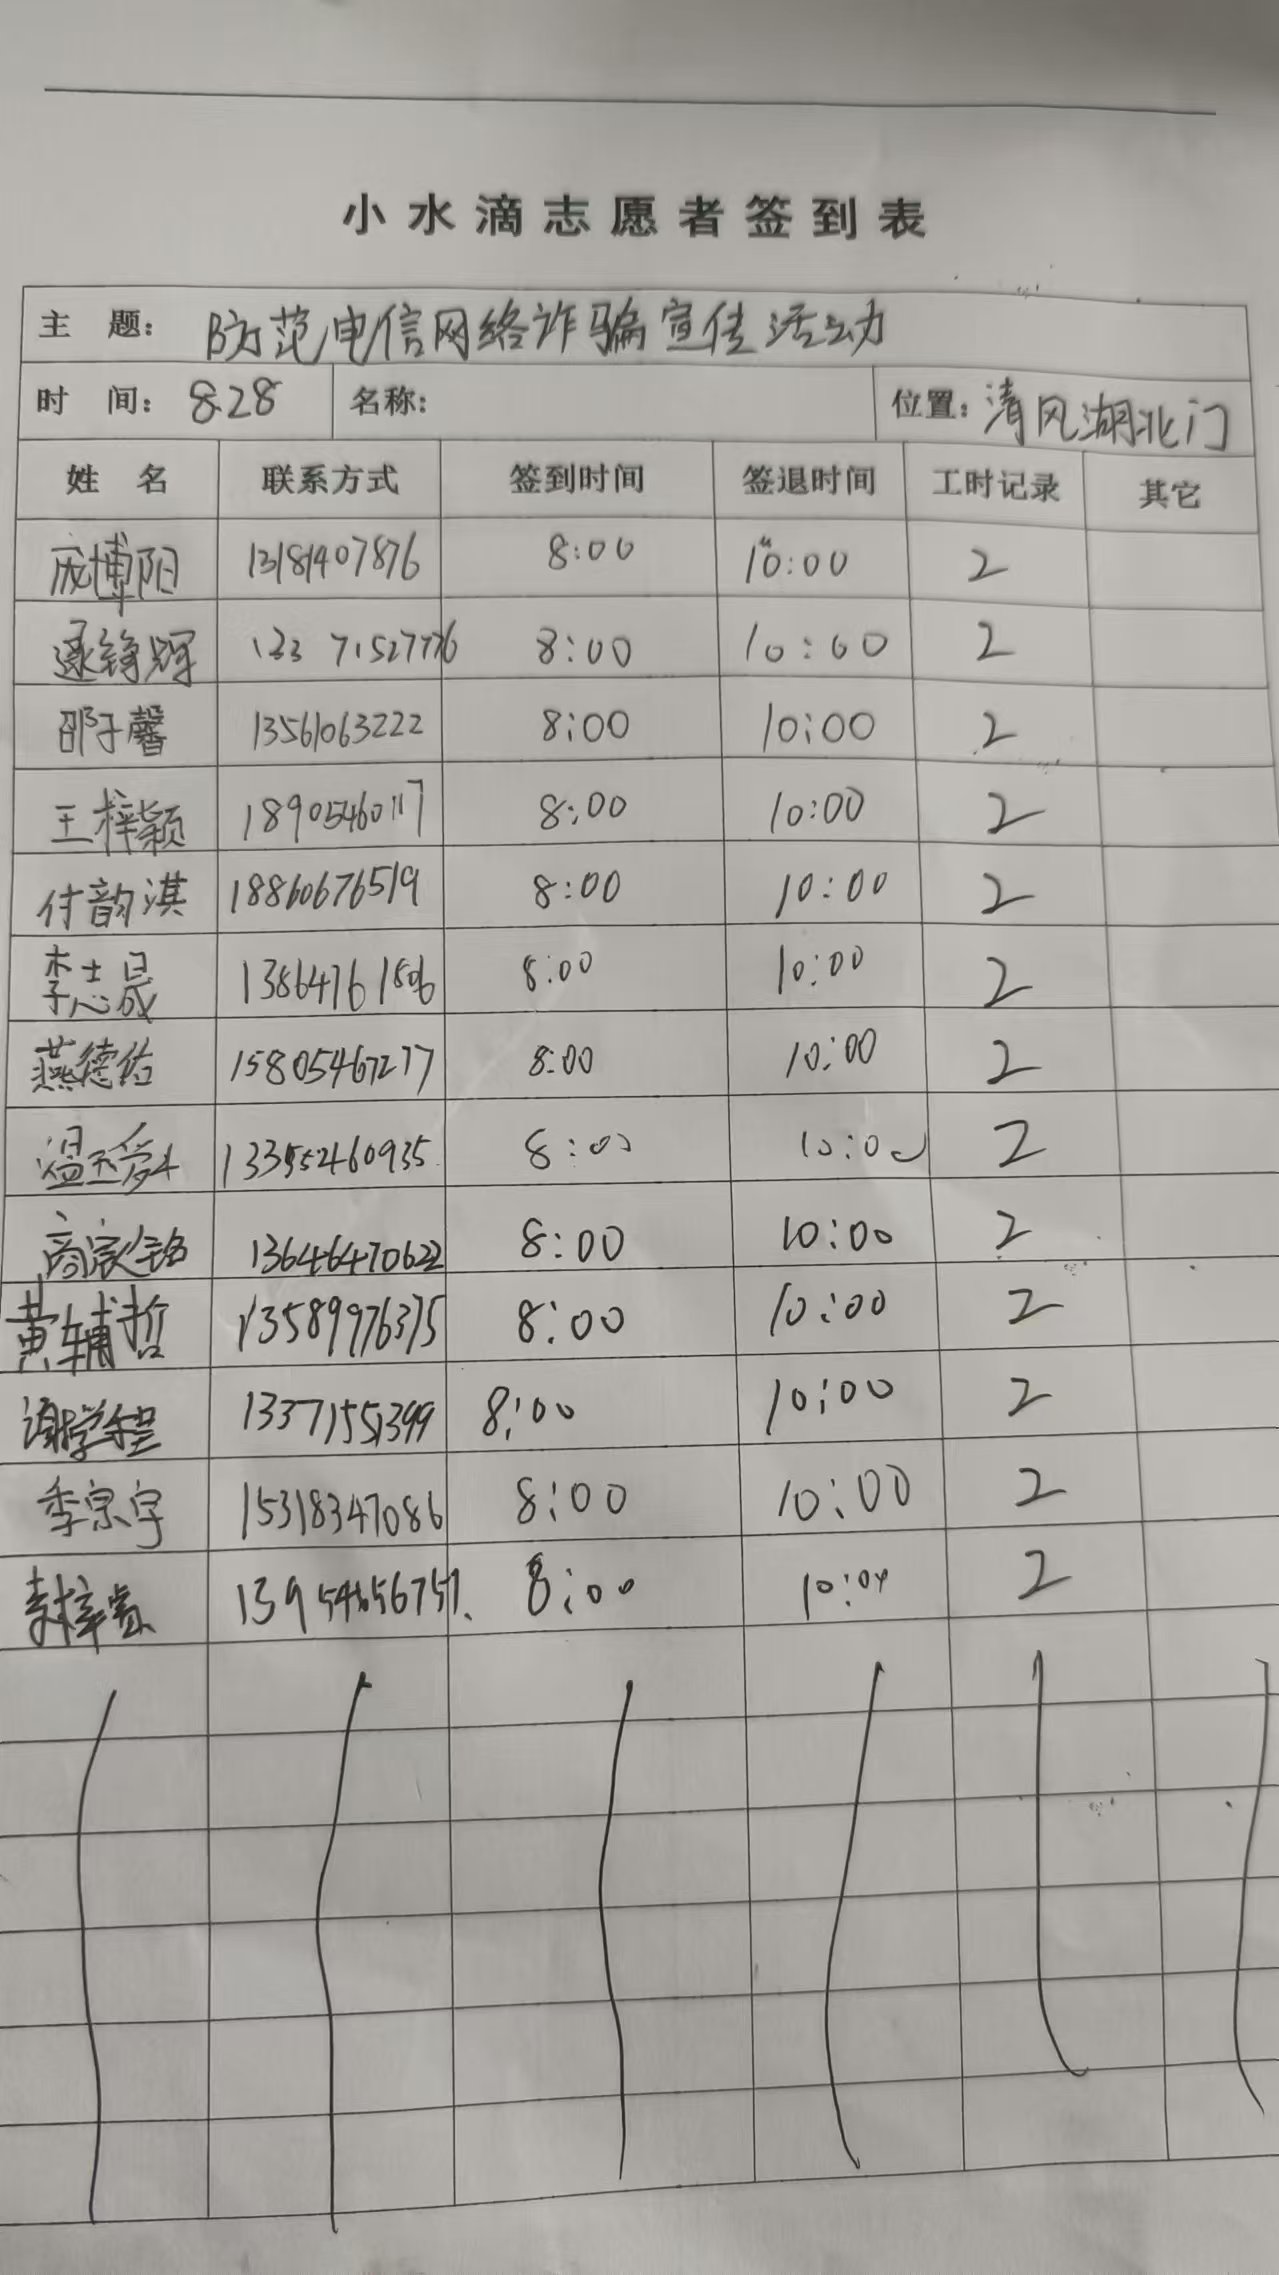 小水滴志愿者签到表
主 题: 防范电信网络诈骗宣传活动
时 间: 8.28 名称: 位置: 清风湖北门
姓 名 联系方式 签到时间 签退时间 工时记录 其它
庞博阳 13181407876 8:00 10:00 2
逯锦辉 13371527776 8:00 10:00 2
邵子馨 13561063222 8:00 10:00 2
王梓颖 18905460117 8:00 10:00 2
付韵淇 18860676519 8:00 10:00 2
李志晟 13864761806 8:00 10:00 2
燕德佑 15805467277 8:00 10:00 2
温 8:00 10:00 2
商宸铭 13646470622 8:00 10:00 2
黄辅哲 13589976375 8:00 10:00 2
谢学程 13371551399 8:00 10:00 2
季宗宇 15318347086 8:00 10:00 2
8:00 10:00 2